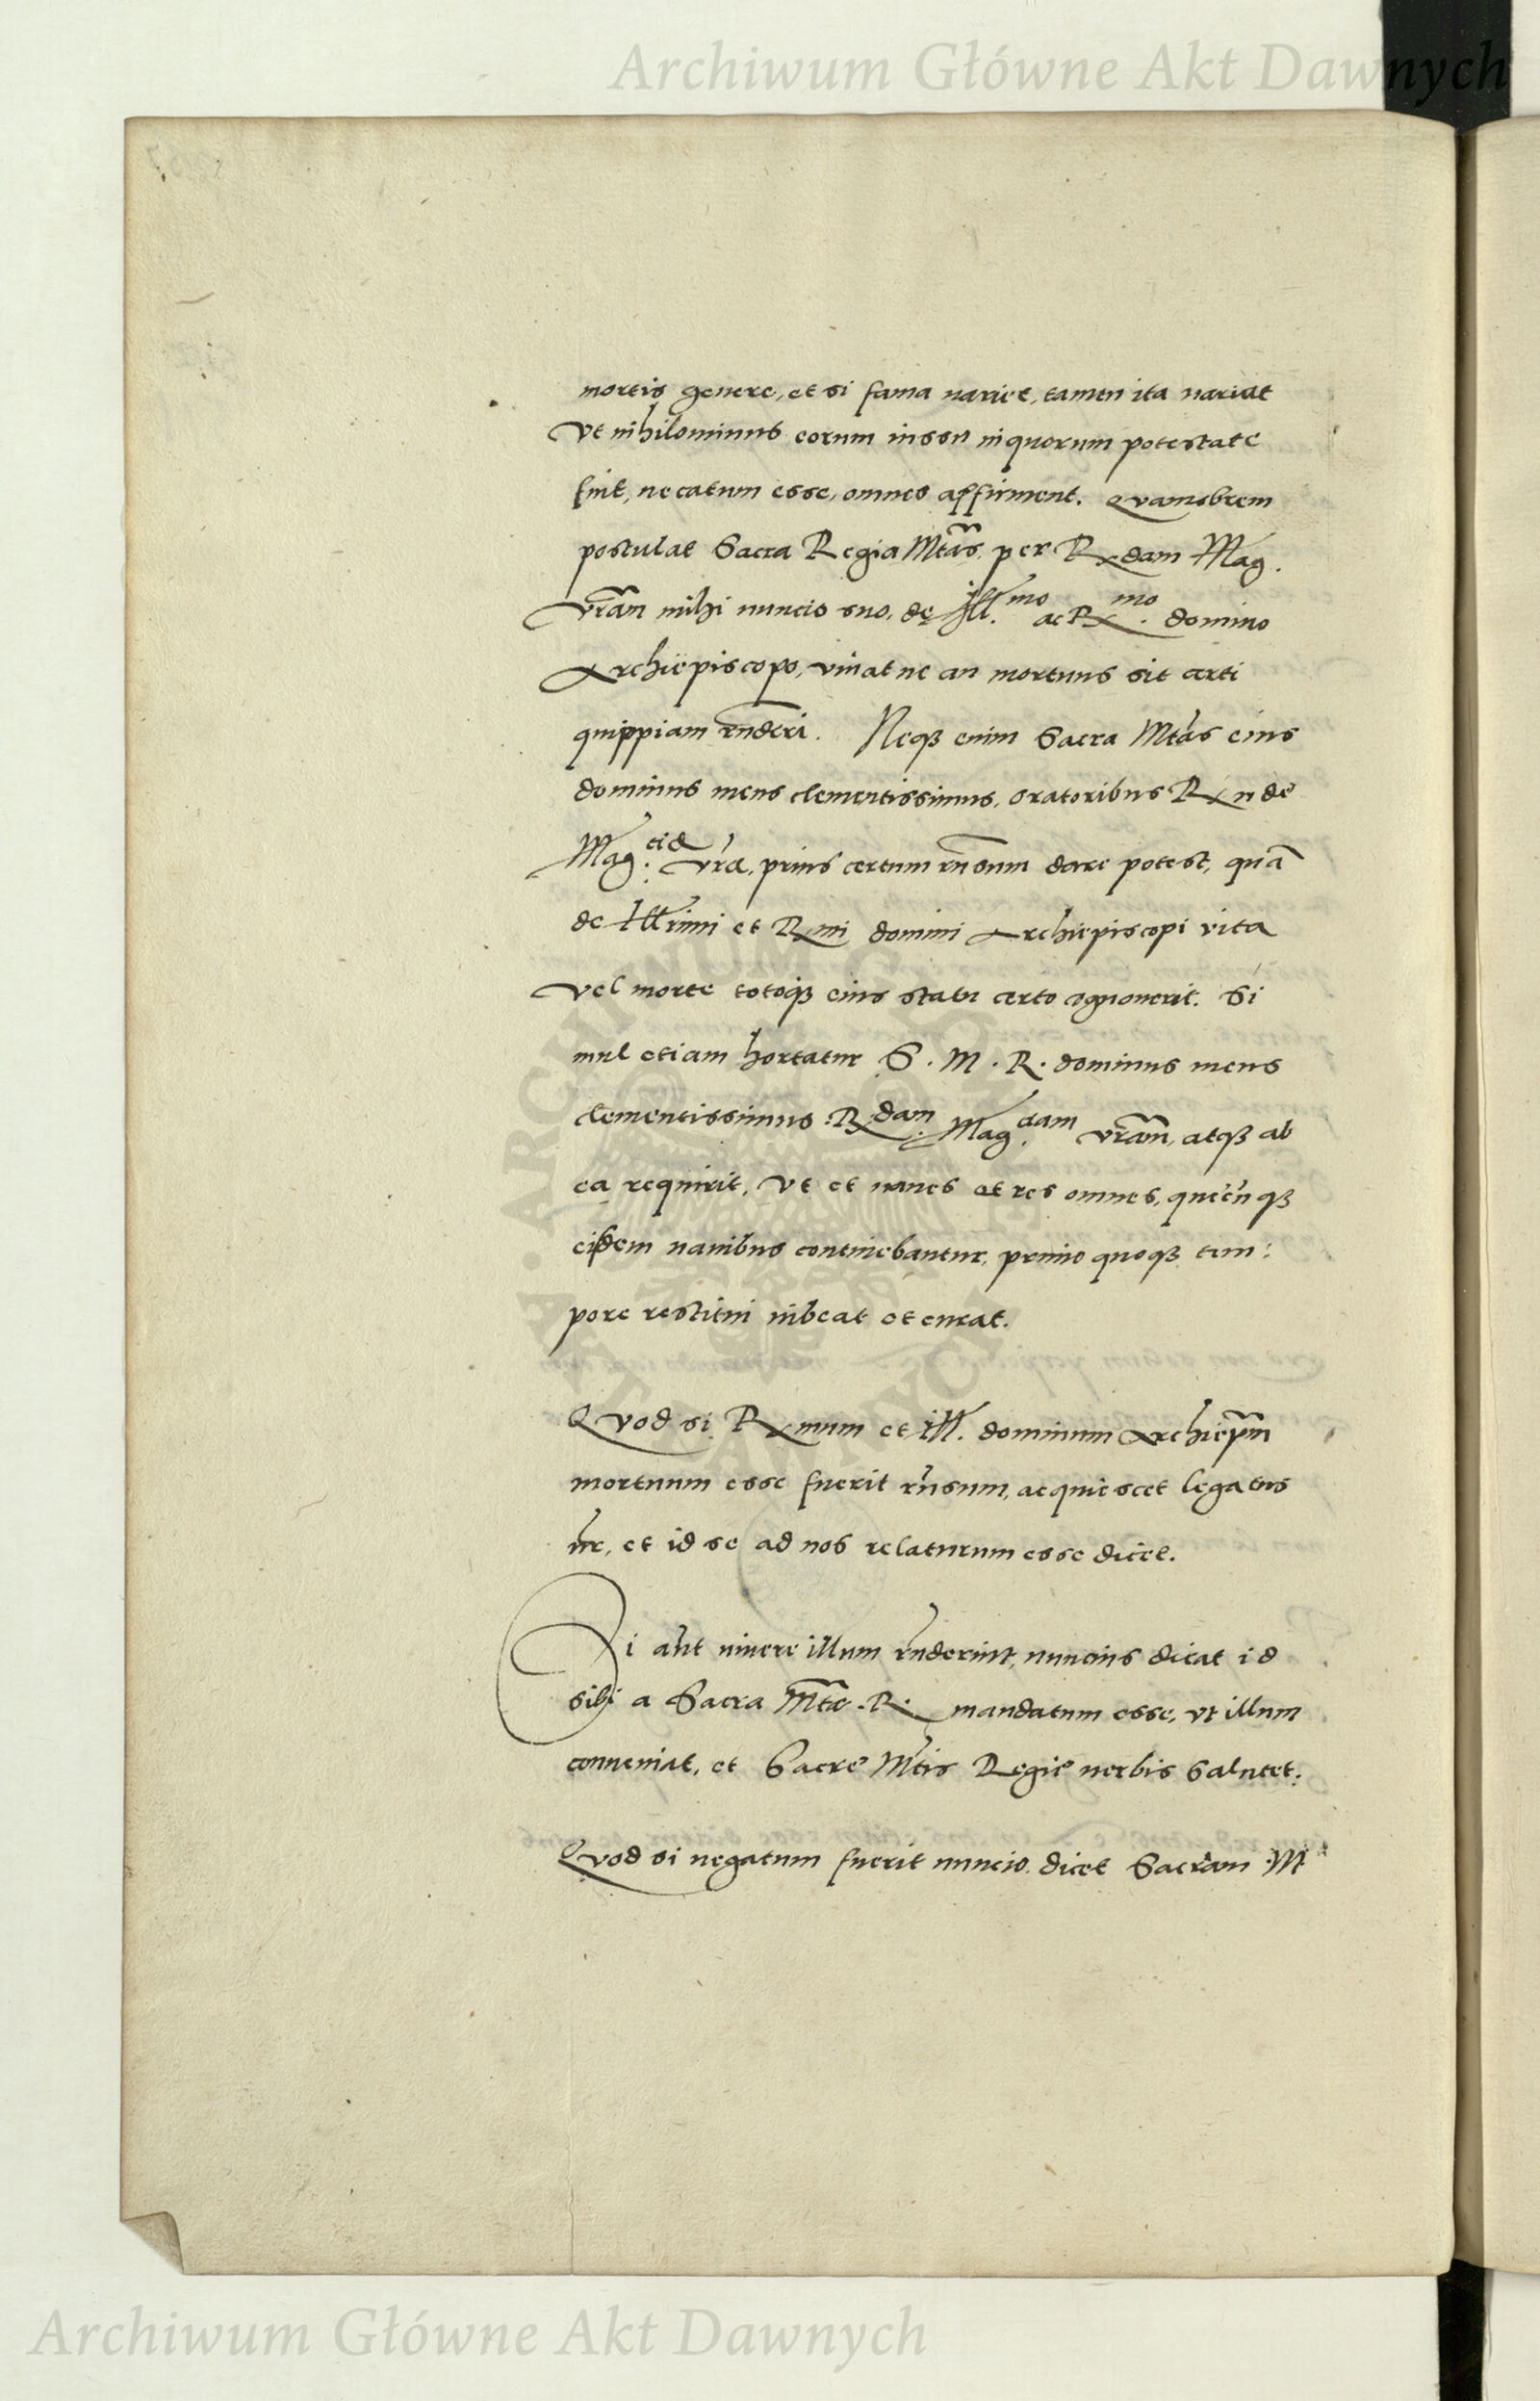 Archiwum Główne Akt Dawnych
mortis genere, et si fama variet, tamen ita variat
Vt nihilominus eorum iussu in quorum potestate
sint, necatum esse, omnes affirment. Quamobrem
postulat Sacra Regia Mtas, per Rdam Mag.
vram mihi nuncio suo, de Ill.mo ac R.mo domino
Archiepiscopo, viuat ne an mortuus sit certi
quippiam rnderi. Neq3 enim Sacra Mtas eius
dominus meus clementissimus, oratoribus Rndę
Mag.tię vrę, prius certum rnsum dare potest, quā
de Illrimi et Rmi domini Archiepiscopi vita
vel morte totoq3 eius statu certo cognouerit. Si
mul etiam hortatur S. M. R. dominus meus
clementissimus Rdam Mag.dam vram, atq3 ab
ea requirit, Vt et naues et res omnes, quęcunq3
eisdem nauibus continebantur, primo quoq3 tem:
pore restitui iubeat et curat.
Quod si Rmum et Ill. dominum Archiepm
mortuum esse fuerit rnsum, acquiescet legatus
nr, et id se ad nos relaturum esse dicet.
Si aut viuere illum rnderint, nuncius dicat id
sibi a Sacra Mte R. mandatum esse, vt illum
conueniat, et Sacrę Mtis Regię verbis Salutet:
Quod si negatum fuerit nuncio dicet Sacram M
ARCHIWUM GŁÓWNE AKT DAWNYCH
Archiwum Główne Akt Dawnych